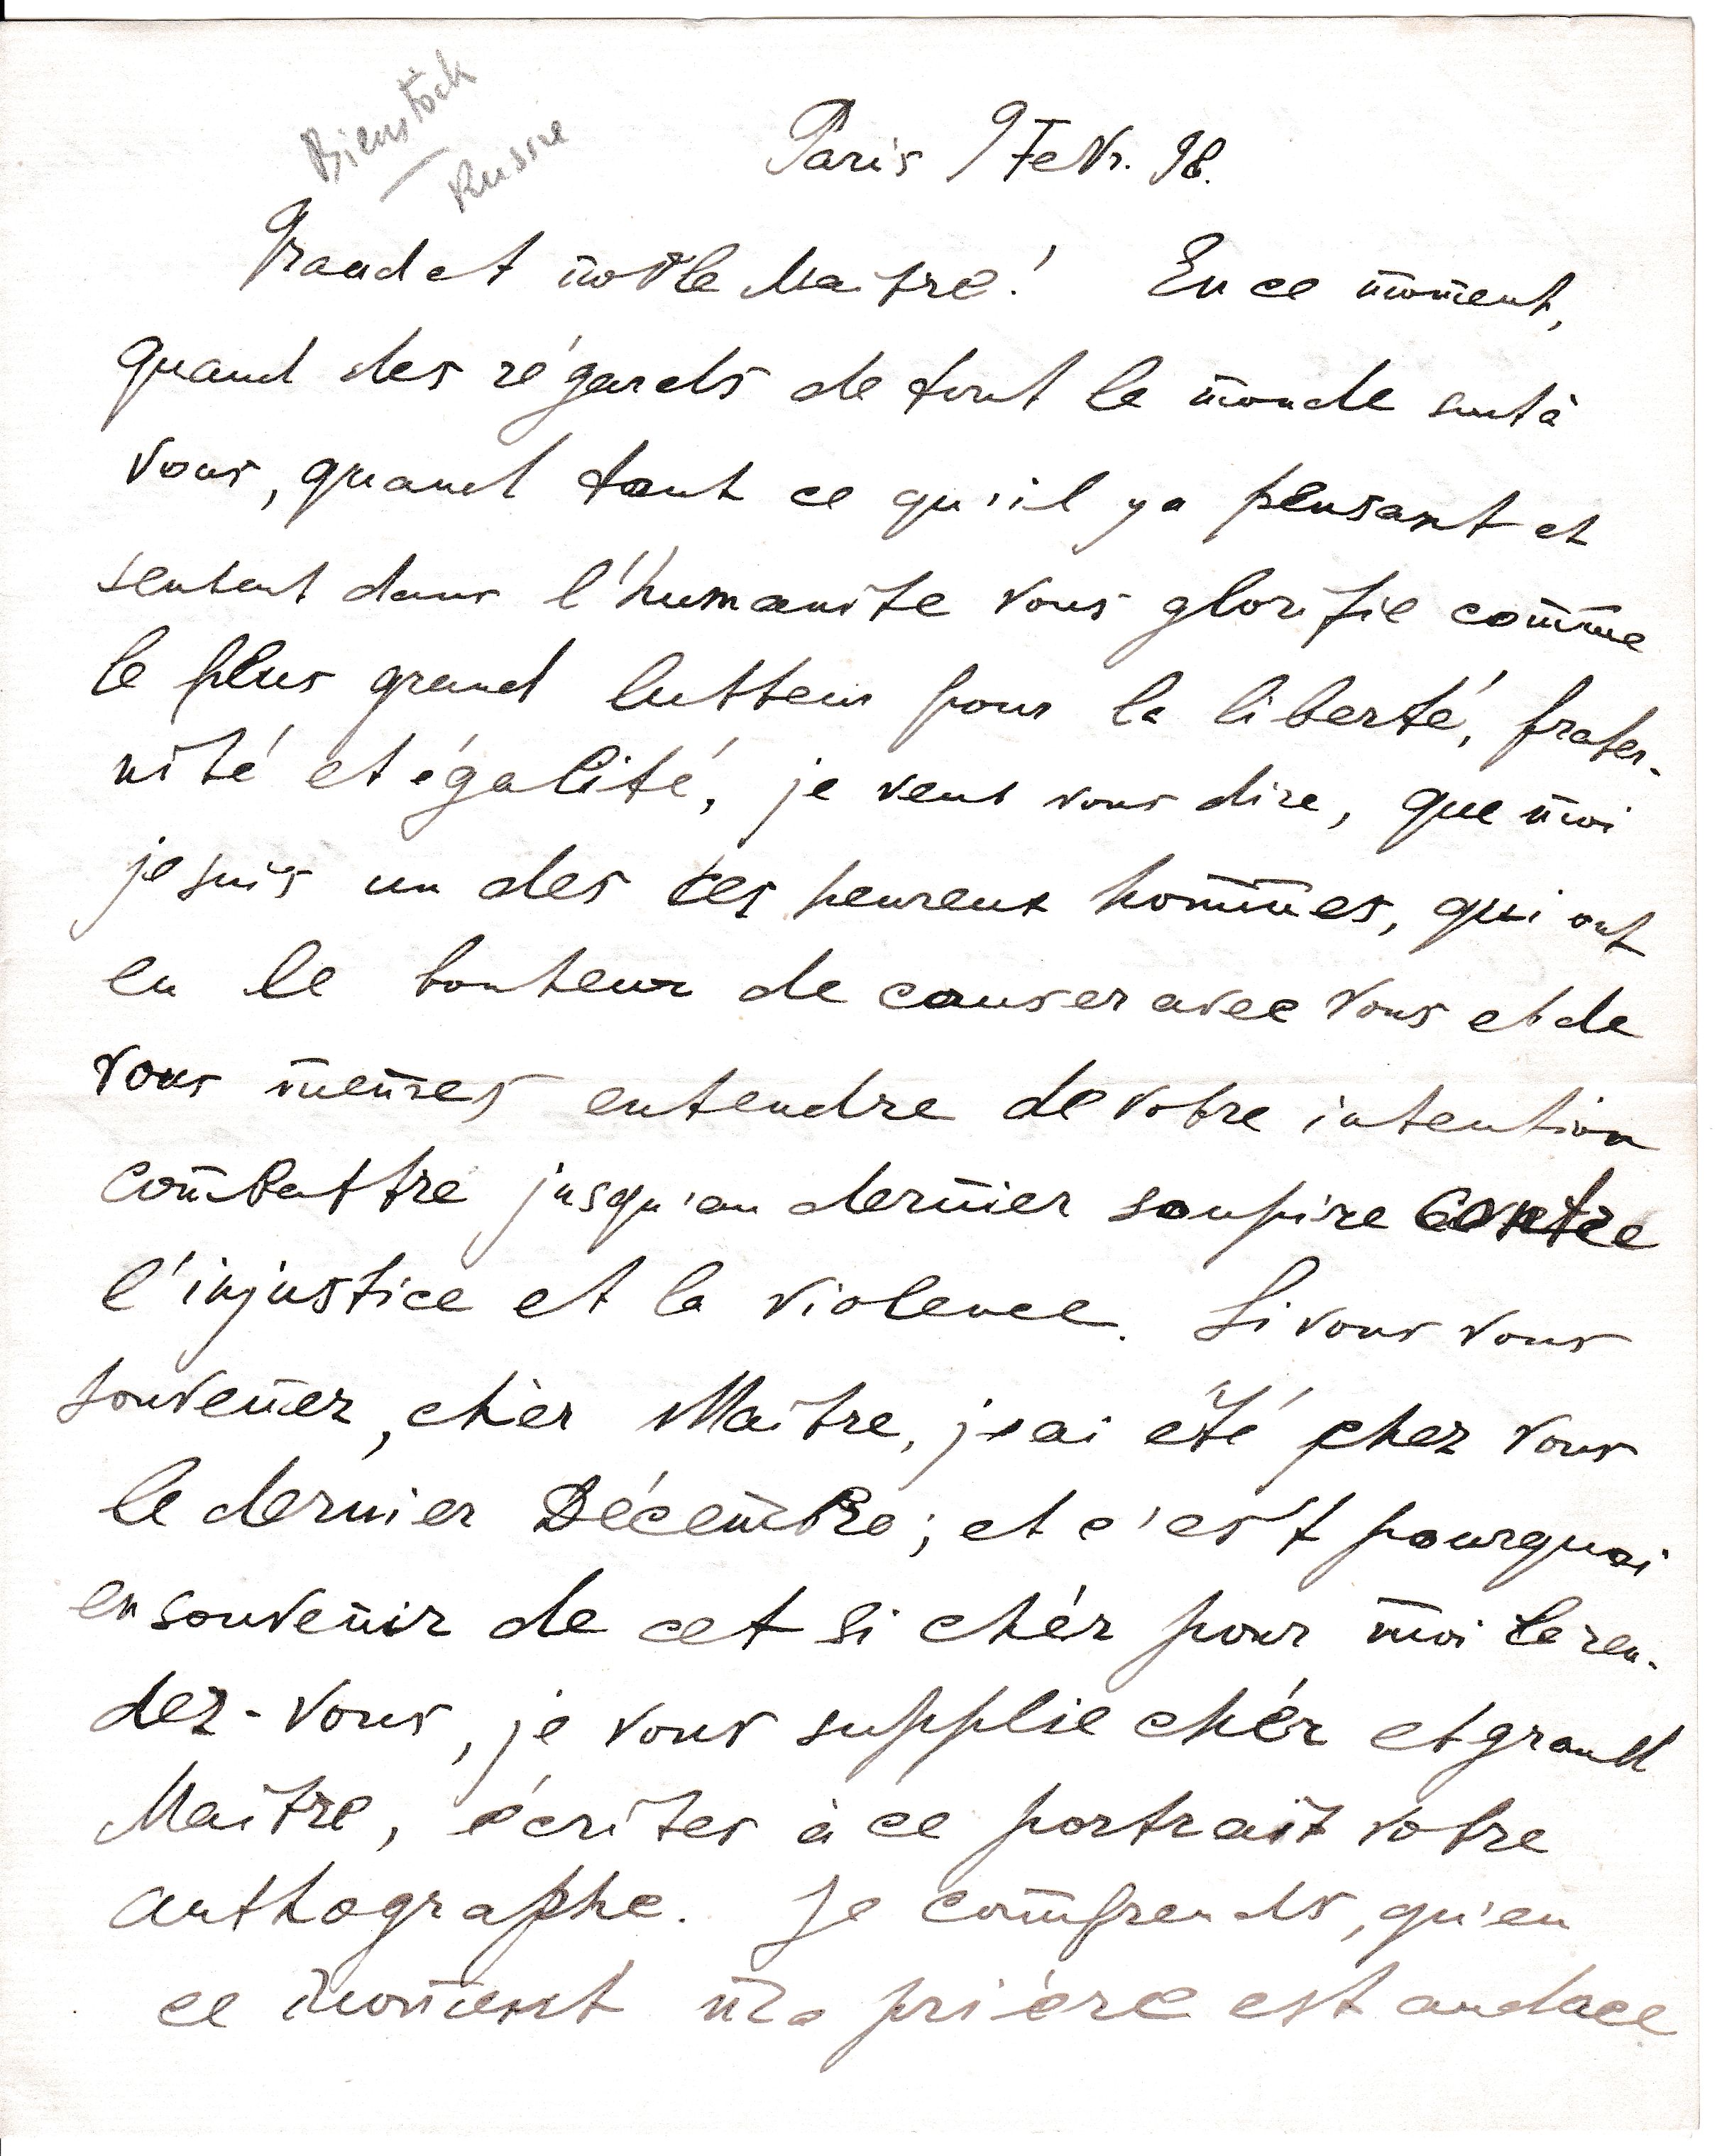 Bienstock
Russie
Paris 9 Fevr. 98.
Grand et noble Maitre! En ce moment,
quand des régards de tout le monde sont à
vous, quand tout ce qu'il y a pensant et
sentent dans l'humanite vous glorifie comme
le plus grand lutteur pour la liberté, frater-
nité et égalité, je veut vous dire, que moi
je suis un des ces heureux hommes, qui ont
eu le bonheur de causer avec vous et de
vous memes entendre de votre intention
combattre jusqu'au dernier soupire contre
l'injustice et la violence. Si vous vous
souvenez, chèr Maitre, j'ai été chez vous
le dernier Décembre; et c'est pourquoi
en souvenir de cet si chér pour moi le ren-
dez-vous, je vous supplie chér et grand
Maitre, écrites à ce portrait votre
authographe. Je comprends, qu'en
ce moment ma prière est audace